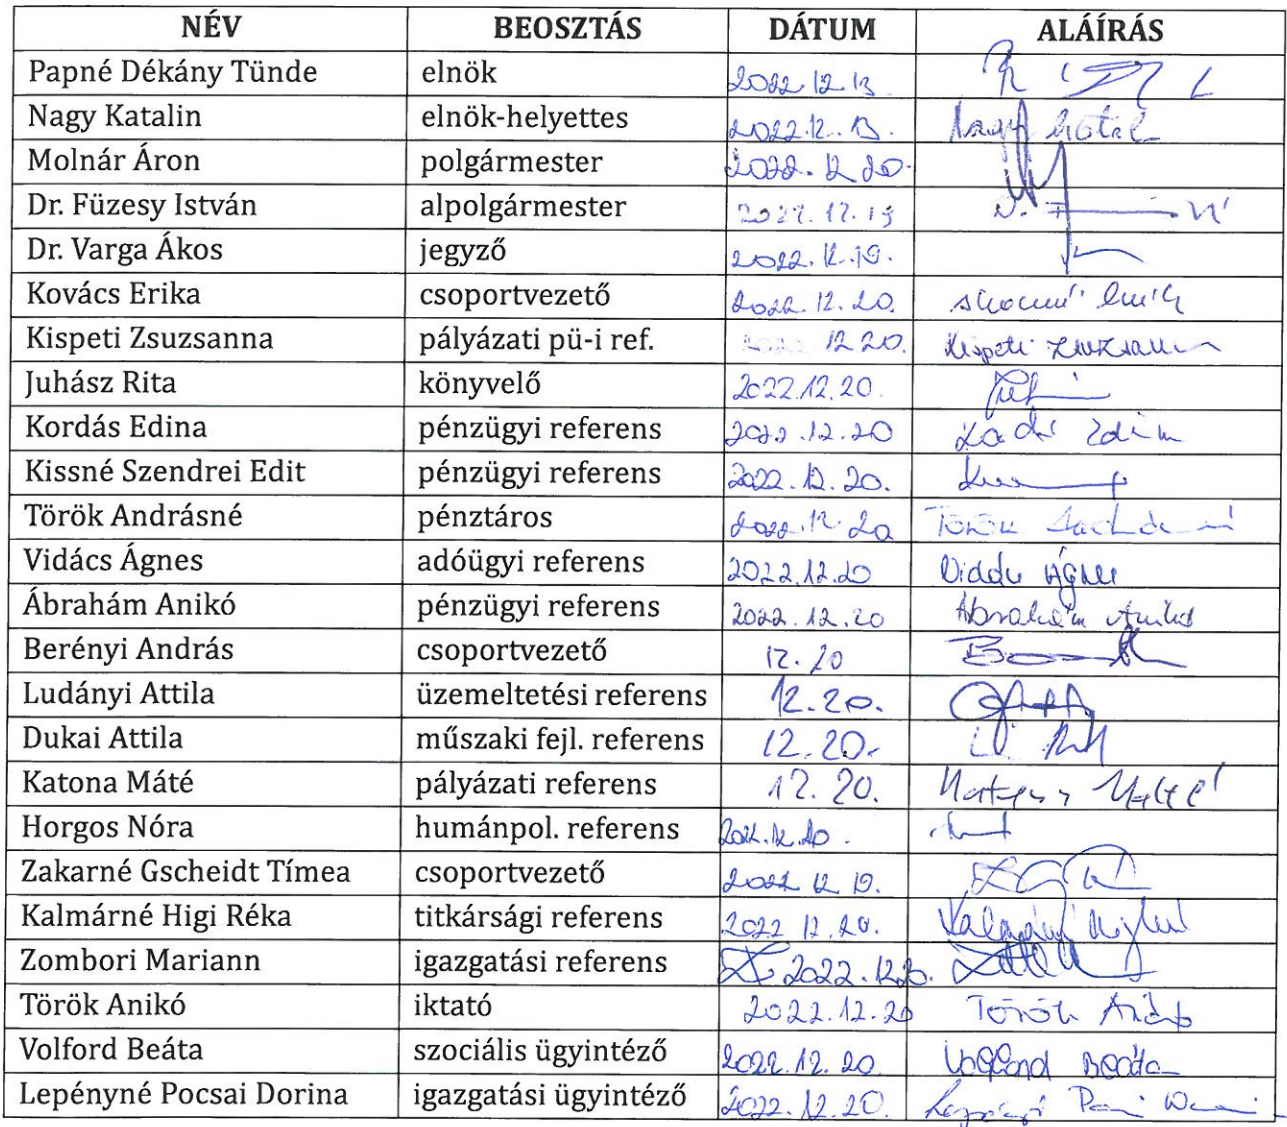 NÉV BEOSZTÁS DÁTUM ALÁÍRÁS
Papné Dékány Tünde elnök 2022.12.13
Nagy Katalin elnök-helyettes 2022.12.13. Nagy Katal
Molnár Áron polgármester 2022.12.20.
Dr. Füzesy István alpolgármester 2022.12.19
Dr. Varga Ákos jegyző 2022.12.19.
Kovács Erika csoportvezető 2022.12.20.
Kispeti Zsuzsanna pályázati pü-i ref. 12 20. Kispeti Zsuzsanna
Juhász Rita könyvelő 2022.12.20.
Kordás Edina pénzügyi referens 2022.12.20
Kissné Szendrei Edit pénzügyi referens 2022.12.20.
Török Andrásné pénztáros 2022.12.20 Török
Vidács Ágnes adóügyi referens 2022.12.20 Ágnes
Ábrahám Anikó pénzügyi referens 2022.12.20 Ábrahám Anikó
Berényi András csoportvezető 12.20
Ludányi Attila üzemeltetési referens 12.20.
Dukai Attila műszaki fejl. referens 12.20.
Katona Máté pályázati referens 12.20.
Horgos Nóra humánpol. referens 2022.12.20.
Zakarné Gscheidt Tímea csoportvezető 2022 12 19.
Kalmárné Higi Réka titkársági referens 2022 12.20.
Zombori Mariann igazgatási referens 2022.12.20.
Török Anikó iktató 2022.12.20 Török Anikó
Volford Beáta szociális ügyintéző 2022.12.20 Volford Beáta
Lepényné Pocsai Dorina igazgatási ügyintéző 2022.12.20.